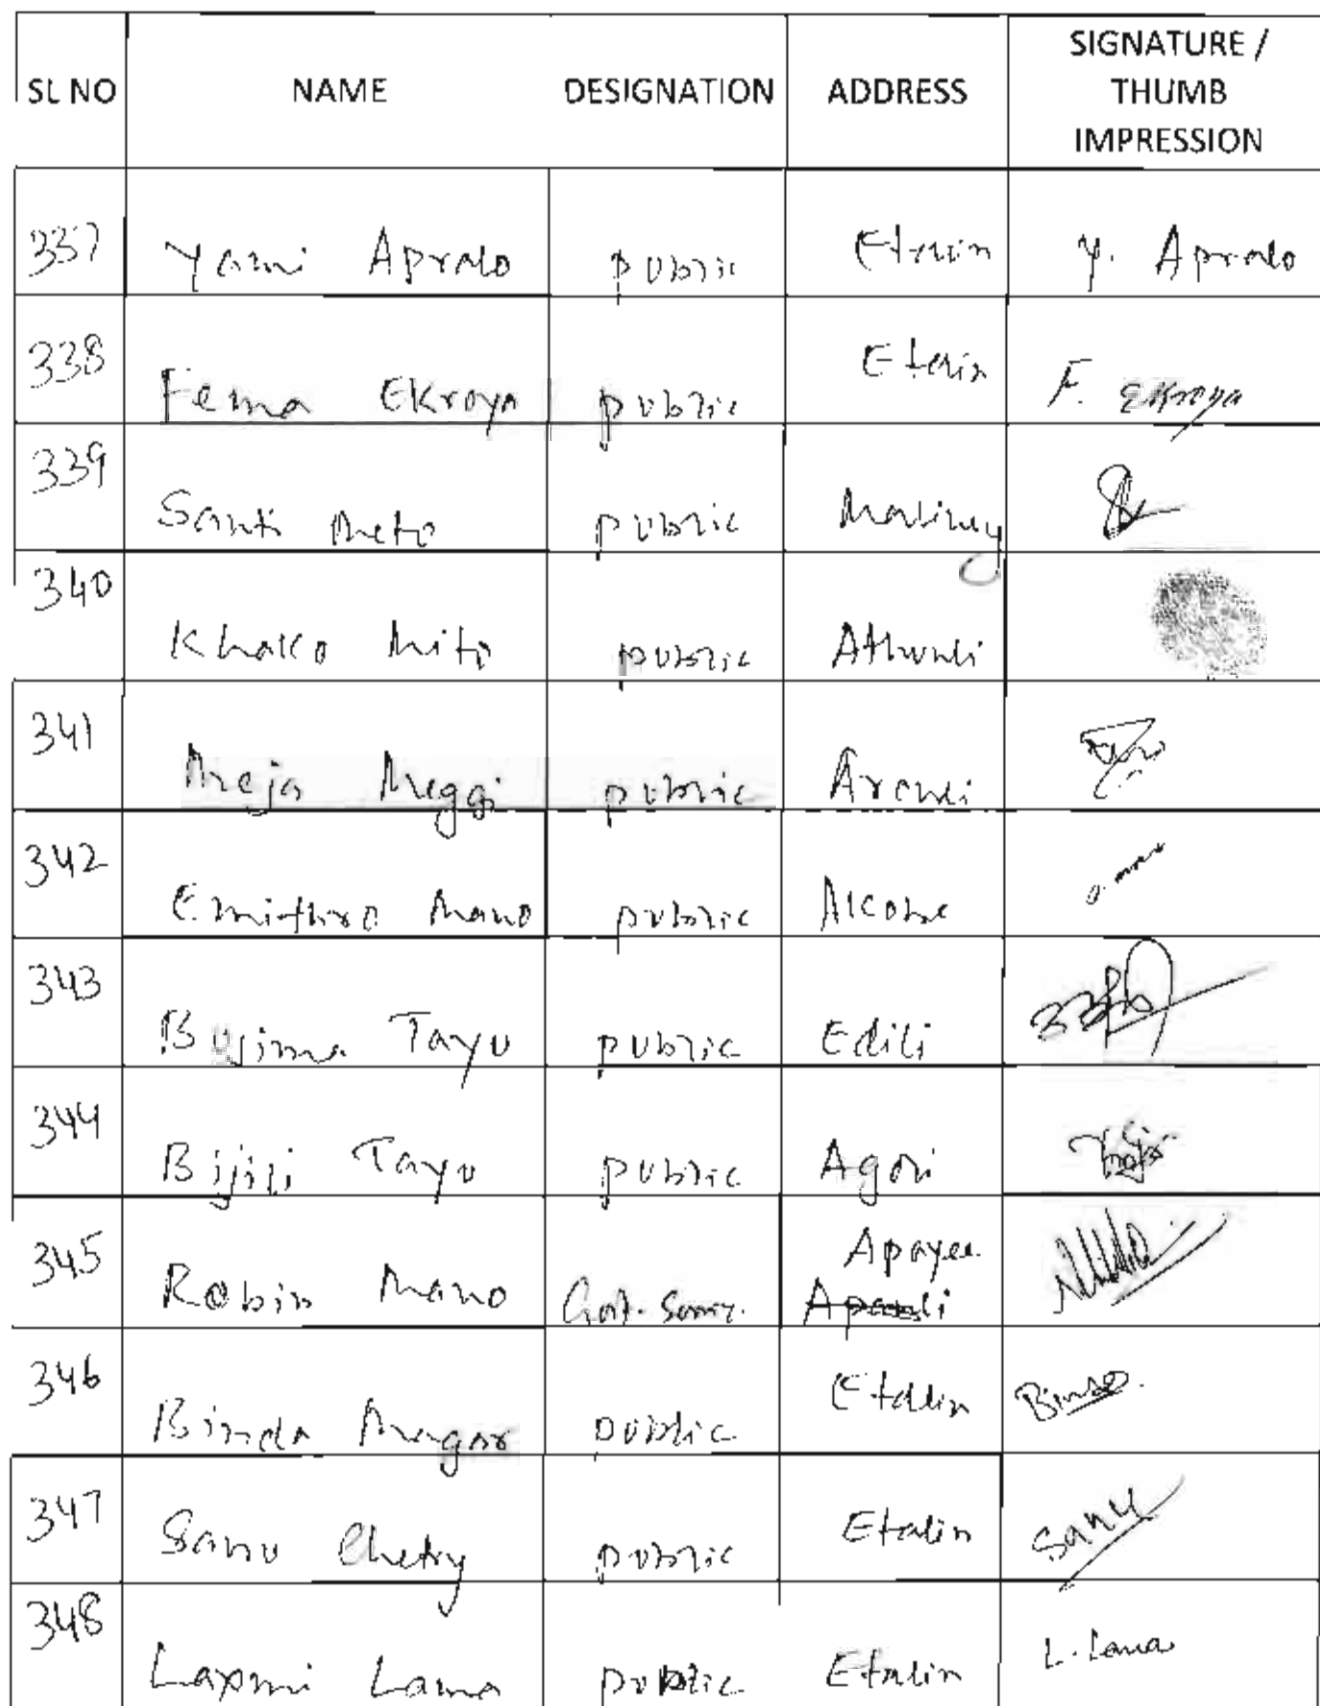 SL NO NAME DESIGNATION ADDRESS SIGNATURE / THUMB IMPRESSION
337 Yami Apralo public Etalin Y. Apralo
338 Fema Ekroya public Etalin F. Ekroya
339 Santi Meto public
340 Khako Mito public Athunli
341 Meja Meggi public
342 Emithro Mano public
343 Bujima Tayu public Edili
344 Bijili Tayu public Agoli
345 Robin Mano Apayee
346 Binda Magar public Etalin
347 Sanu Chetry public Etalin Sanu
348 Laxmi Lama public Etalin L. Lama